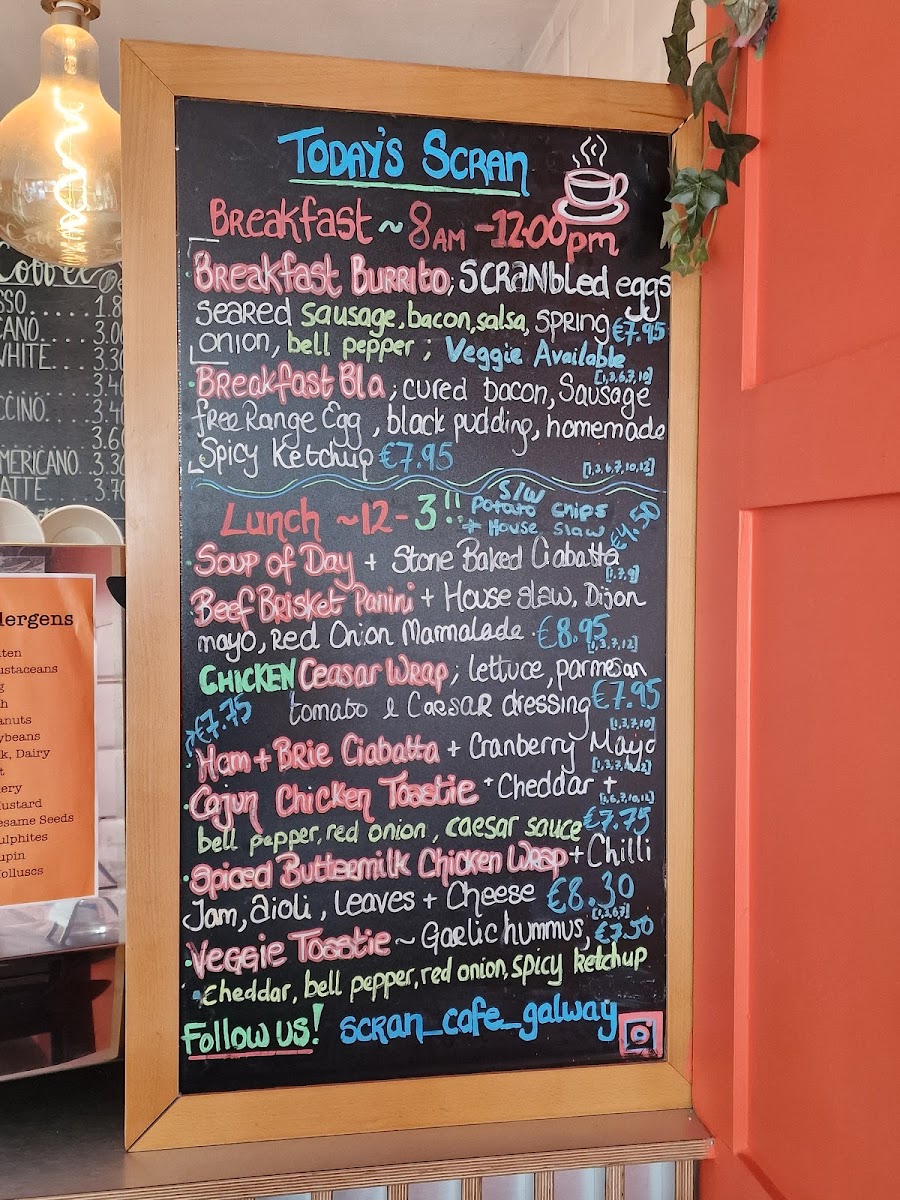 TODAY'S SCRAN
BREAKFAST ~ 8AM - 12.00pm
BREAKFAST BURRITO; SCRANbled eggs
SEARED Sausage, bacon, salsa, SPRING €7.95
ONION, bell pepper ; Veggie Available
[1,3,6,7,10]
· BREAKFAST Bla ; cured bacon, Sausage
free Range Egg , black pudding, homemade
Spicy Ketchup €7.95
[1,3,6,7,10,12]
LUNCH ~12-3!!
S/W
POTATO CHIPS
+ HOUSE SLAW €4.50
· SOUP OF DAY + Stone Baked Ciabatta
[1,7,9]
BEEF BRISKET PANINI + House slaw, Dijon
mayo, Red Onion Marmalade · €8.95
[1,3,7,12]
CHICKEN CEASAR WRAP ; lettuce, parmesan
tomato & CAESAR dressing €7.95
[1,3,7,10]
€7.75
· HAM + BRIE CIABATTA + Cranberry Mayo
· CAJUN CHICKEN TOASTIE + Cheddar +
bell pepper, red onion, caesar sauce €7.75
· SPICED BUTTERMILK CHICKEN WRAP + Chilli
Jam, aioli, leaves + Cheese €8.30
[1,3,6,7]
· VEGGIE TOASTIE ~ Garlic hummus, €7.50
cheddar, bell pepper, red onion, spicy ketchup
Follow us! SCRAN_cafe_galway
1.8
3.00
WHITE 3.30
3.40
3.60
AMERICANO 3.30
3.70